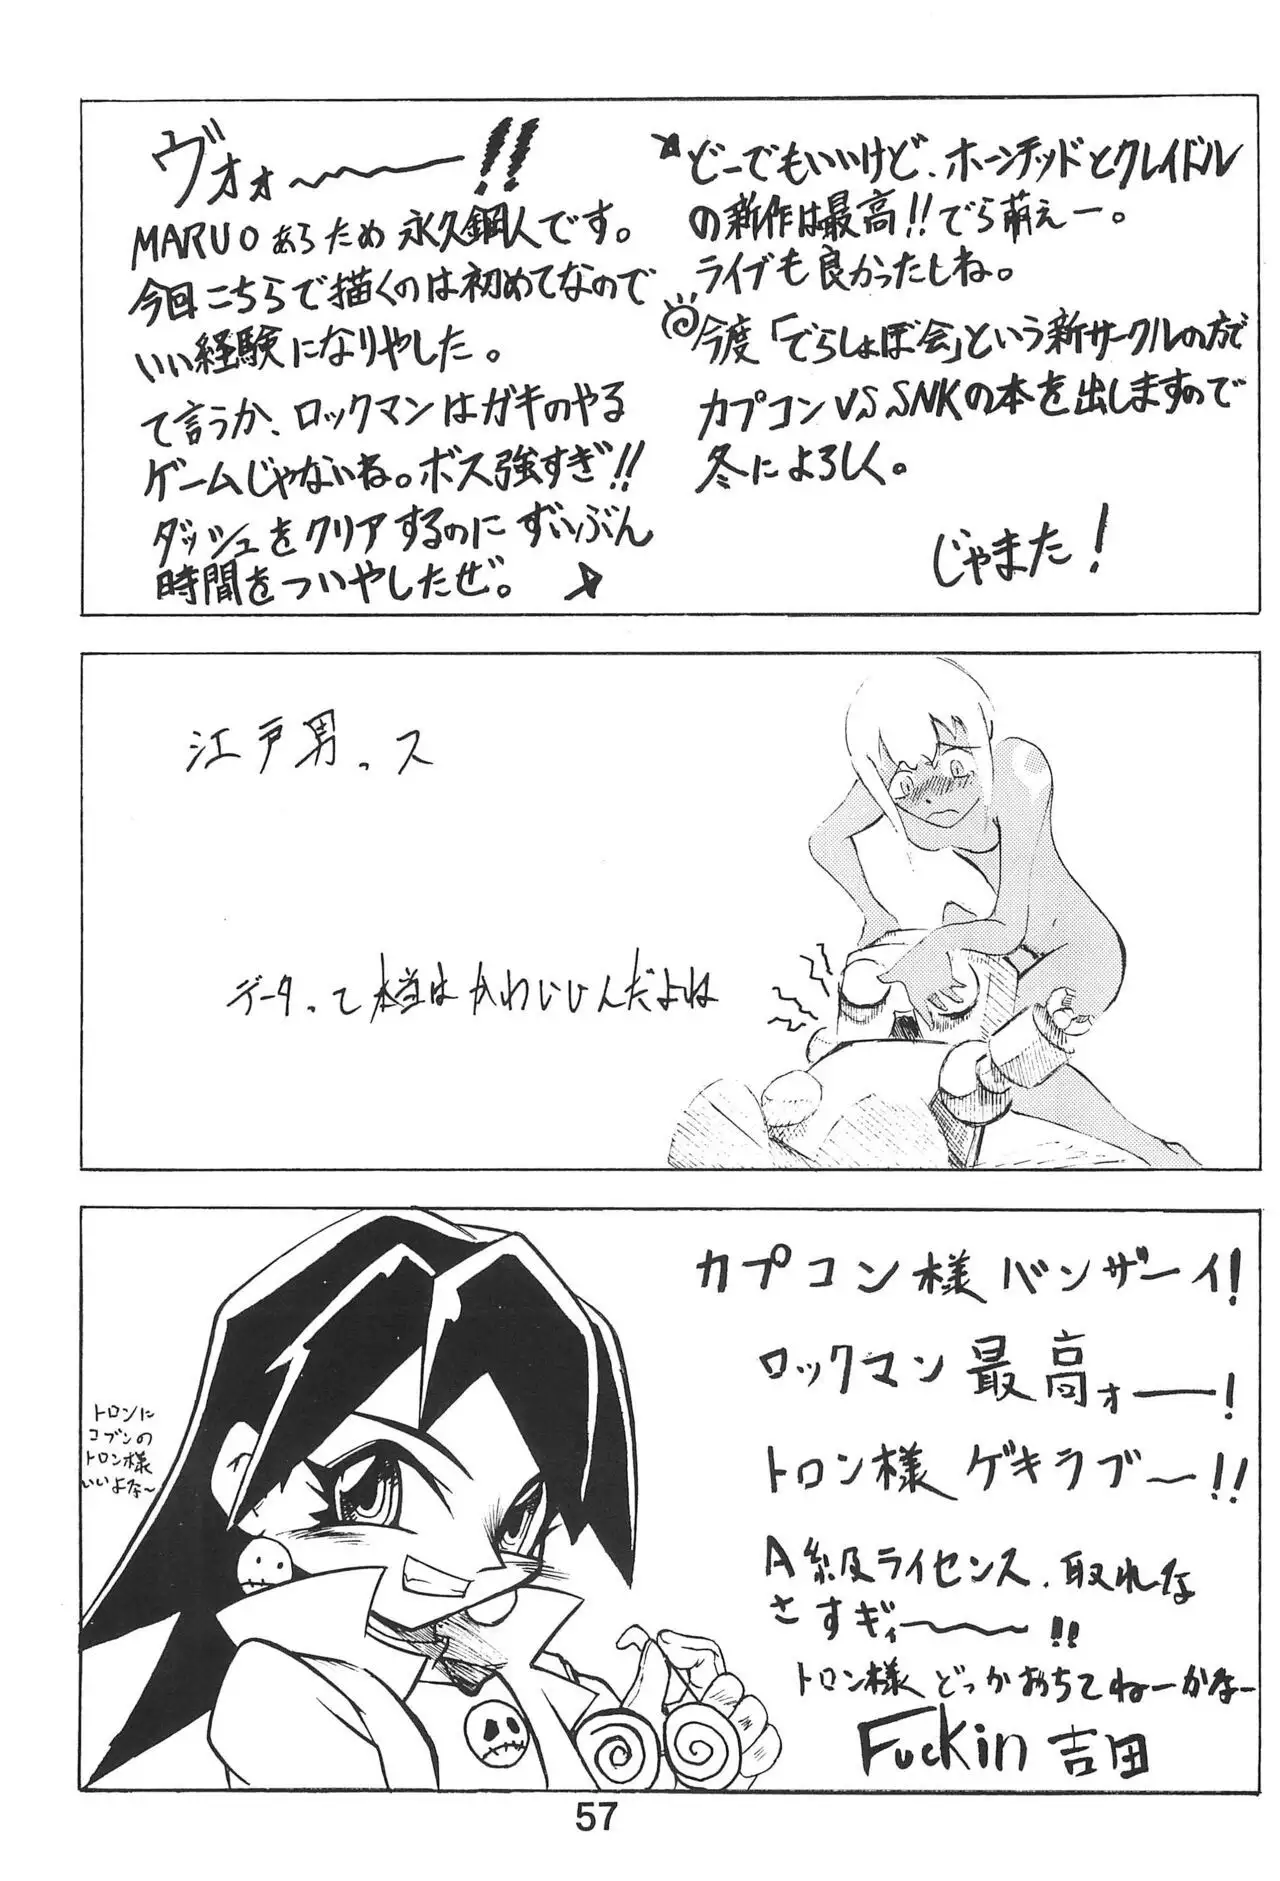 ヴォォ〜〜〜!!
MARUOあらため永久鋼人です。
今回こちらで描くのは初めてなので
いい経験になりやした。
て言うか、ロックマンはガキのやる
ゲームじゃないね。ボス強すぎ!!
ダッシュをクリアするのにずいぶん
時間をついやしたぜ。
どーでもいいけど、ホーンテッドとクレイドル
の新作は最高!!でら萌えー。
ライブも良かったしね。
今度「でらしょぼ会」という新サークルの方で
カプコンVS SNKの本を出しますので
冬によろしく。
じゃまた!
江戸男っス
データって本当はかわいいんだよね
カプコン様バンザーイ!
ロックマン最高ォー!
トロン様ゲキラブ〜!!
A級ライセンス、取れな
さすギィ〜〜〜!!
トロン様どっかおちてねーかなー
Fuckin 吉田
トロンに
コブンの
トロン様
いいよな〜
57